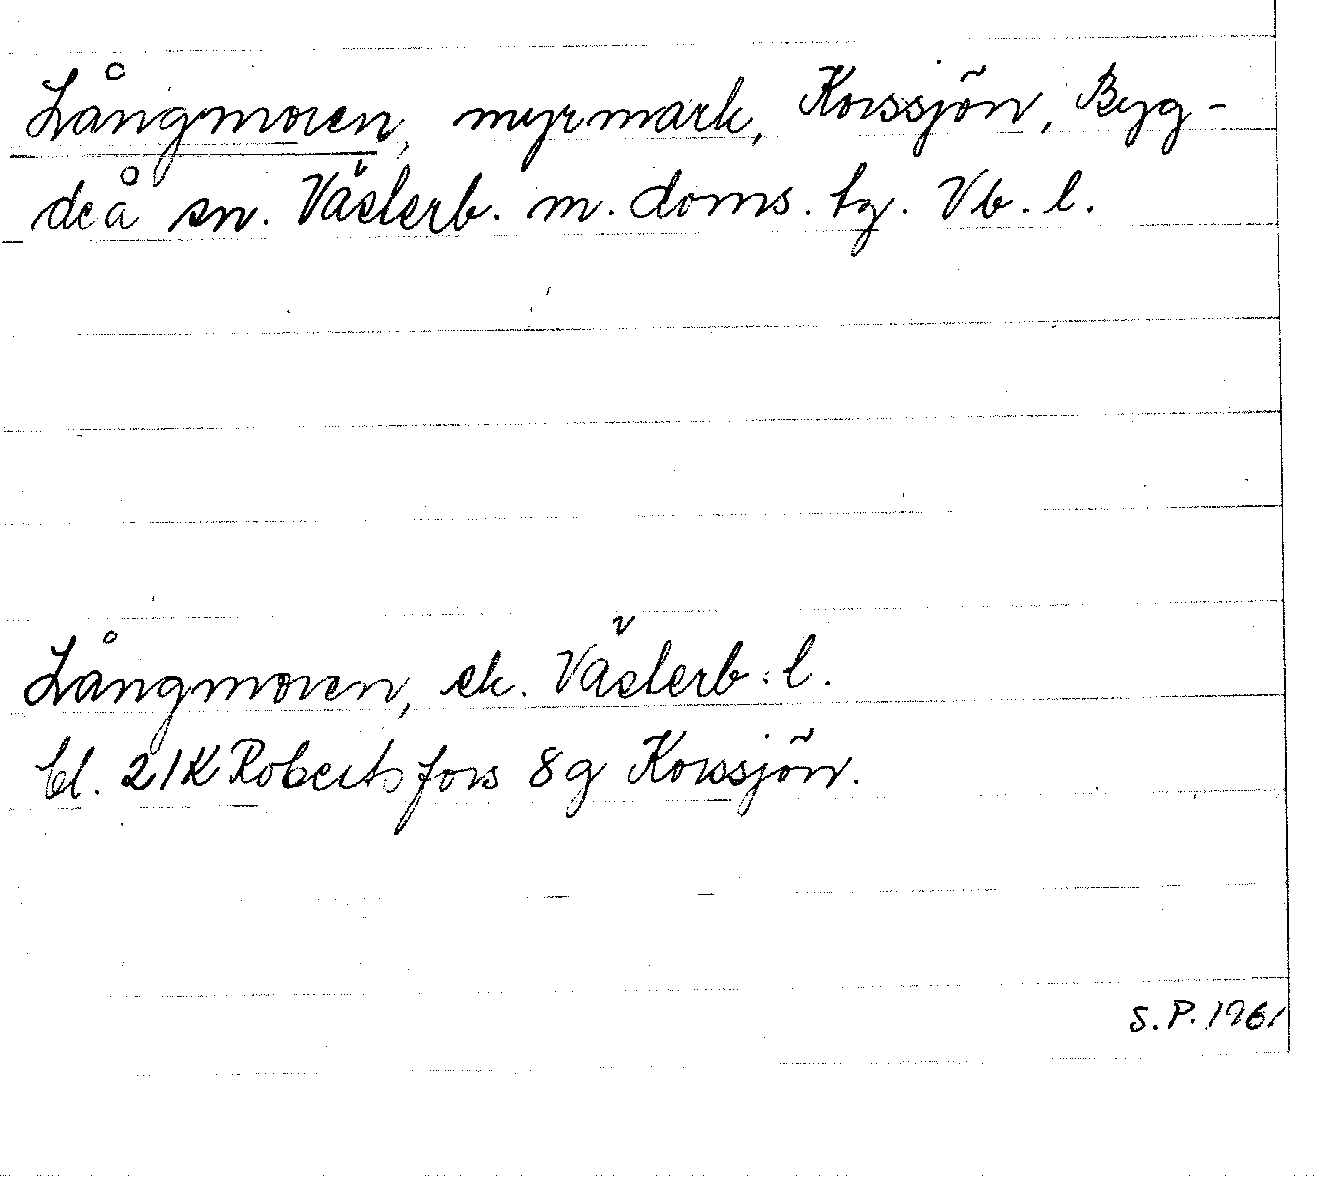 Långmoren, myrmark, Korssjön, Byg-
deå sn. Västerb. m. doms. tg. Vb. l.
Långmoren, ek. Västerb. l.
bl. 21K Robertsfors 8g Korssjön.
S.P. 1961